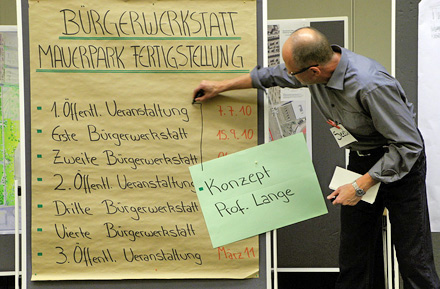 BÜRGERWERKSTATT
MAUERPARK FERTIGSTELLUNG
1. Öffentl. Veranstaltung 7.7.10
Erste Bürgerwerkstatt 15.9.10
Zweite Bürgerwerkstatt
2. Öffentl. Veranstaltung
Dritte Bürgerwerkstatt
Vierte Bürgerwerkstatt
3. Öffentl. Veranstaltung März 11
Konzept
Prof. Lange